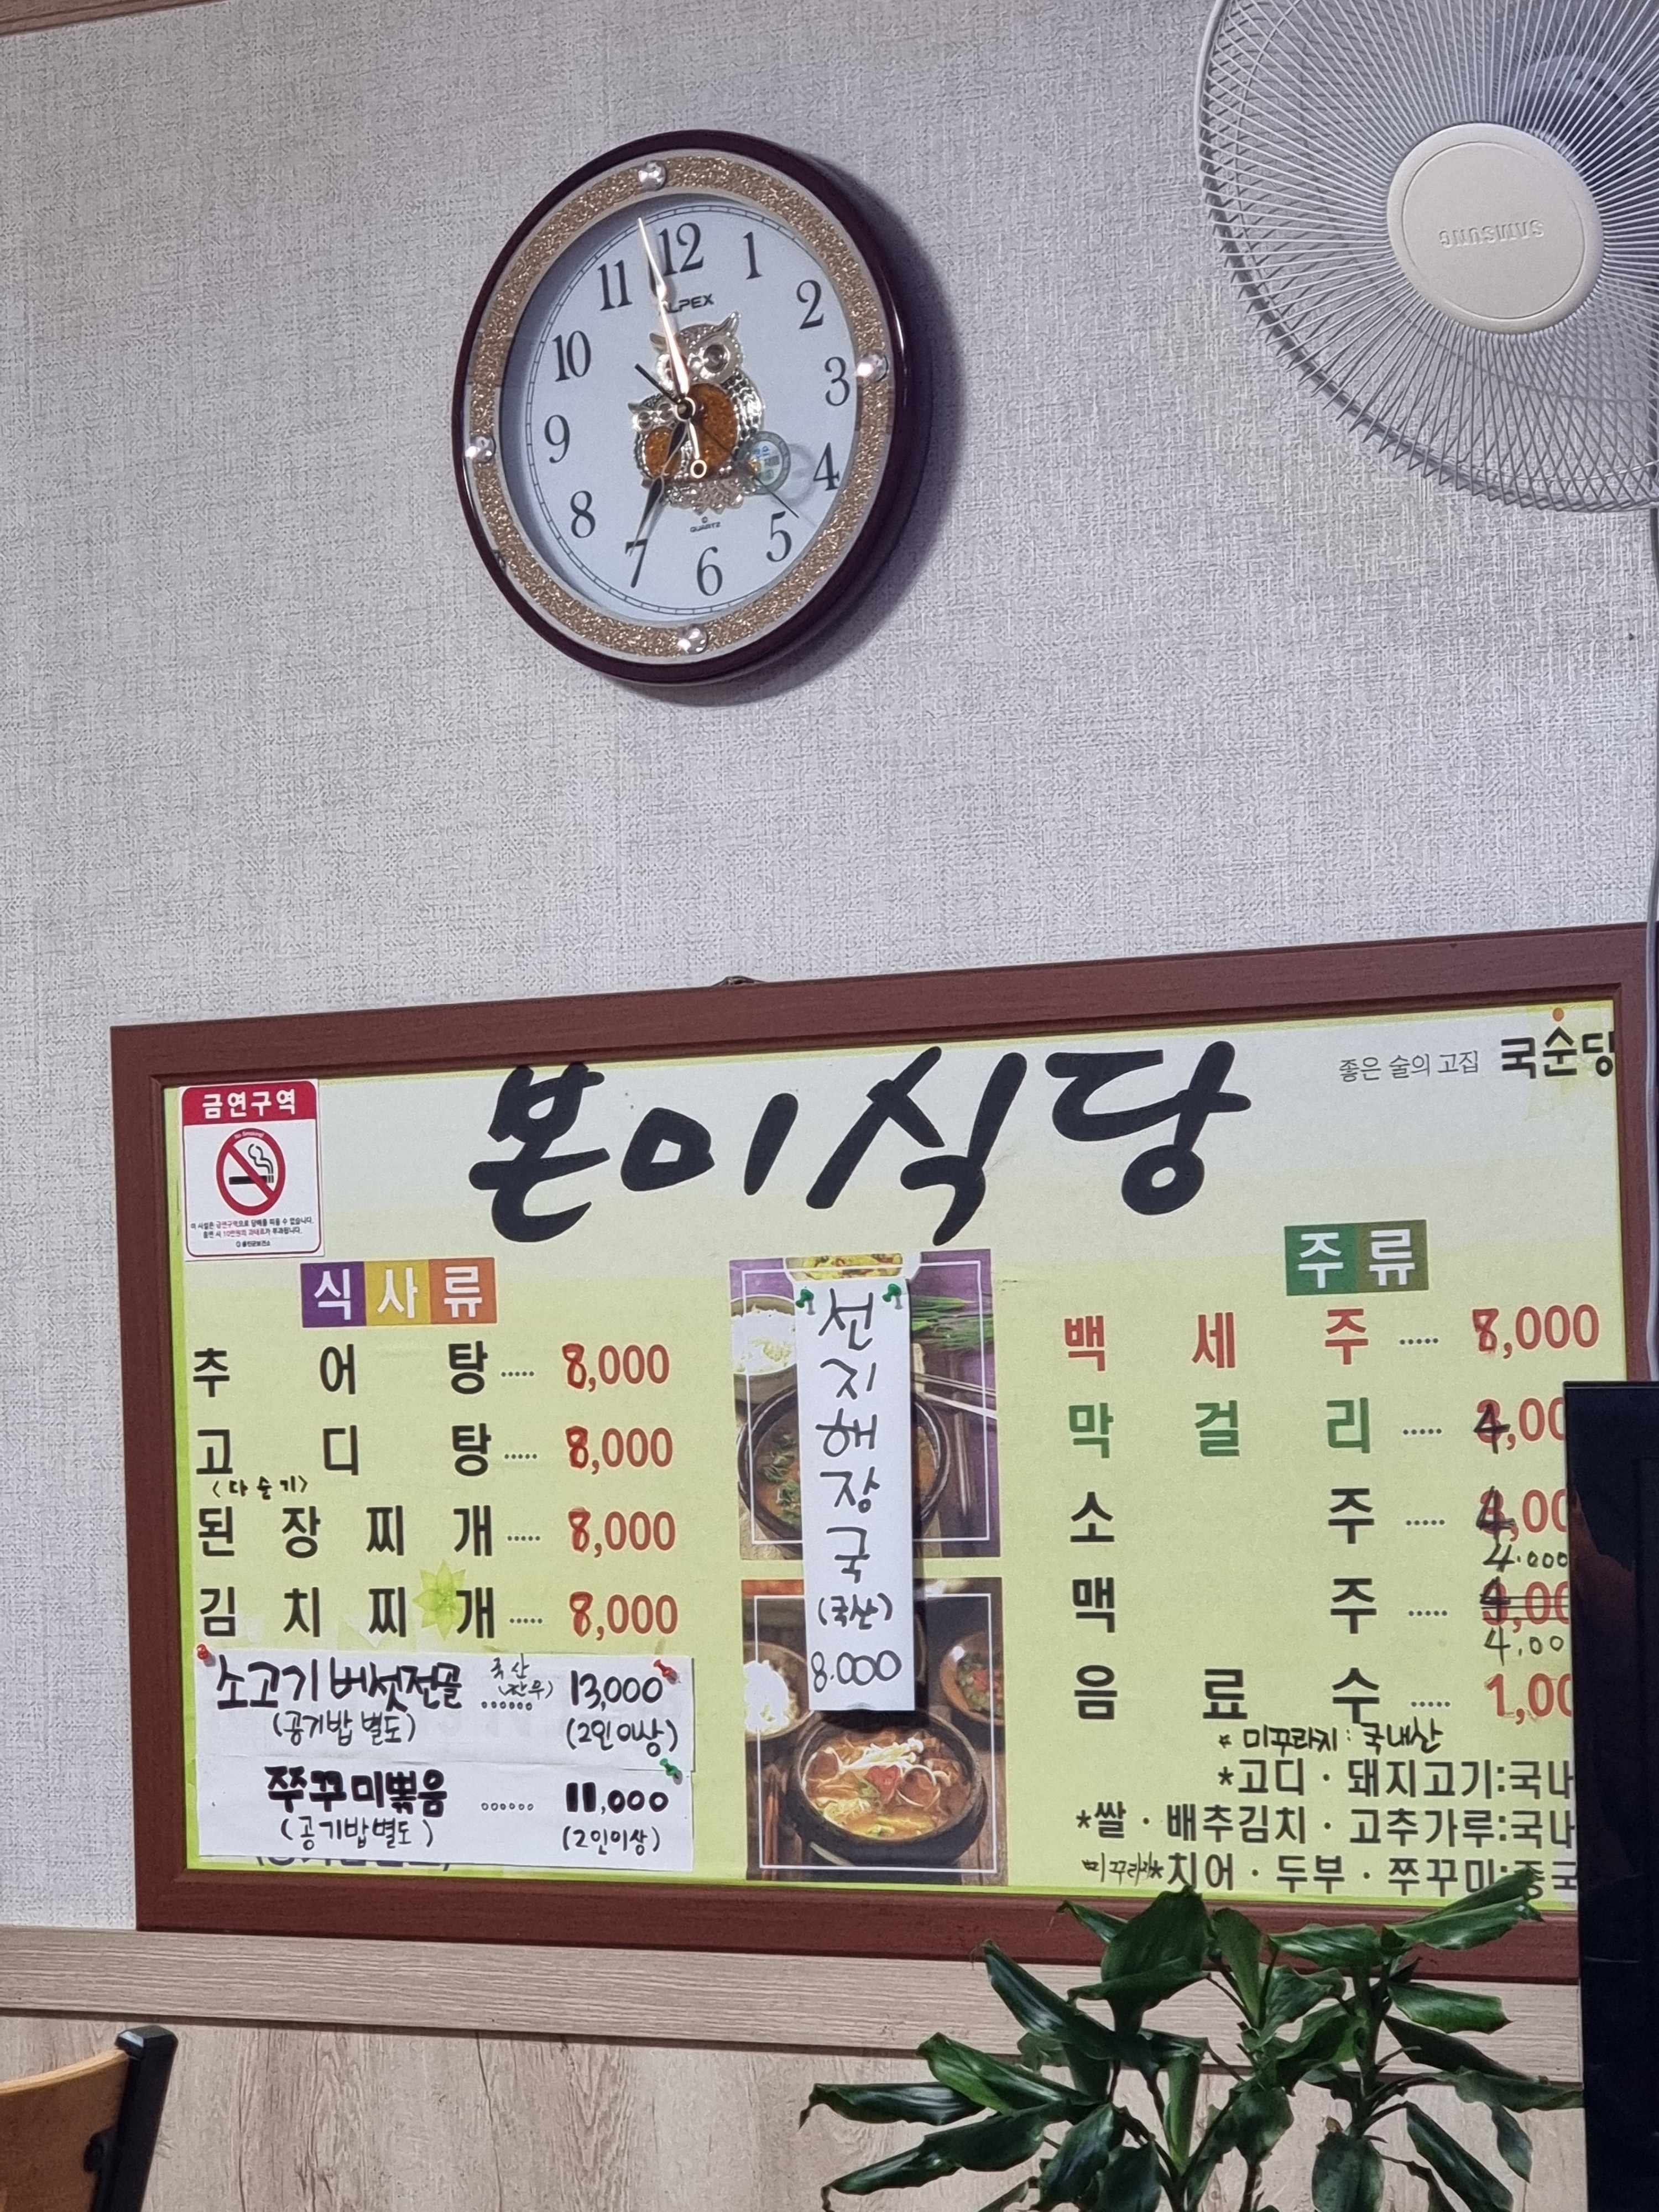 12
11 1
10 2
9 3
8 4
7 5
6
QUARTZ
SAMSUNG
좋은 술의 고집 국순당
금연구역
No Smoking!
이 시설은 금연구역으로 담배를 피울 수 없습니다.
흡연 시 10만원의 과태료가 부과됩니다.
본미식당
식사류
추어탕 ..... 8,000
고디탕 ..... 8,000
(다슬기)
된장찌개 ..... 8,000
김치찌개 ..... 8,000
소고기버섯전골 국산 ...... 13,000
(공기밥 별도) (2인이상)
쭈꾸미볶음 ...... 11,000
(공기밥별도) (2인이상)
선지해장국
(국산)
8.000
주류
백세주 ..... 8,000
막걸리 ..... 4,00
소주 ..... 4,00
4.000
맥주 ..... 4,00
4.00
음료수 ..... 1,00
* 미꾸라지 : 국내산
*고디 · 돼지고기:국내
*쌀 · 배추김치 · 고추가루:국내
미꾸라지*치어 · 두부 · 쭈꾸미:중국